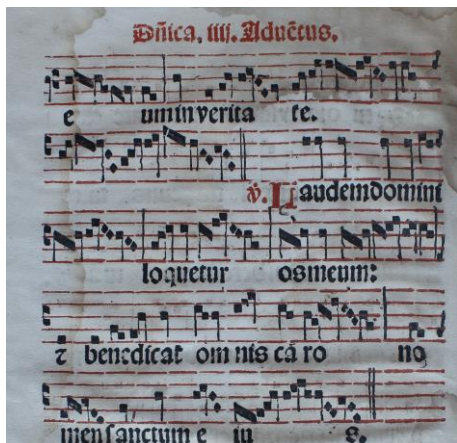 Dñica. iiij. Aduẽtus.
e um in verita te.
℣. Laudem domini
loquetur os meum:
⁊ benedicat om nis cã ro no
men sanctum e iu s.